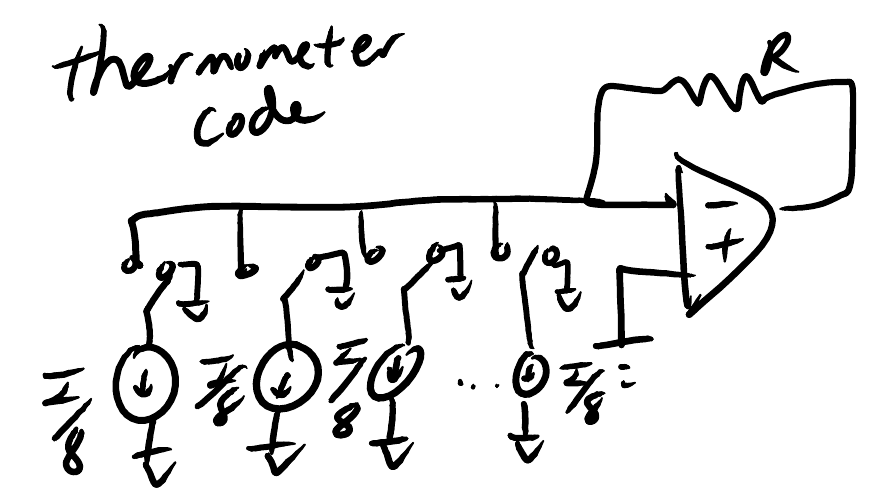 thermometer
code
R
−
+
I/8
I/8
I/8
...
I/8